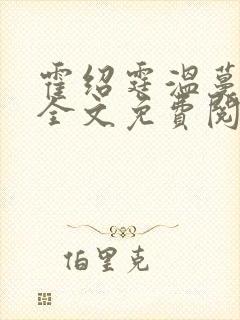 霍绍霆温蔓
全文免费阅
伯里克